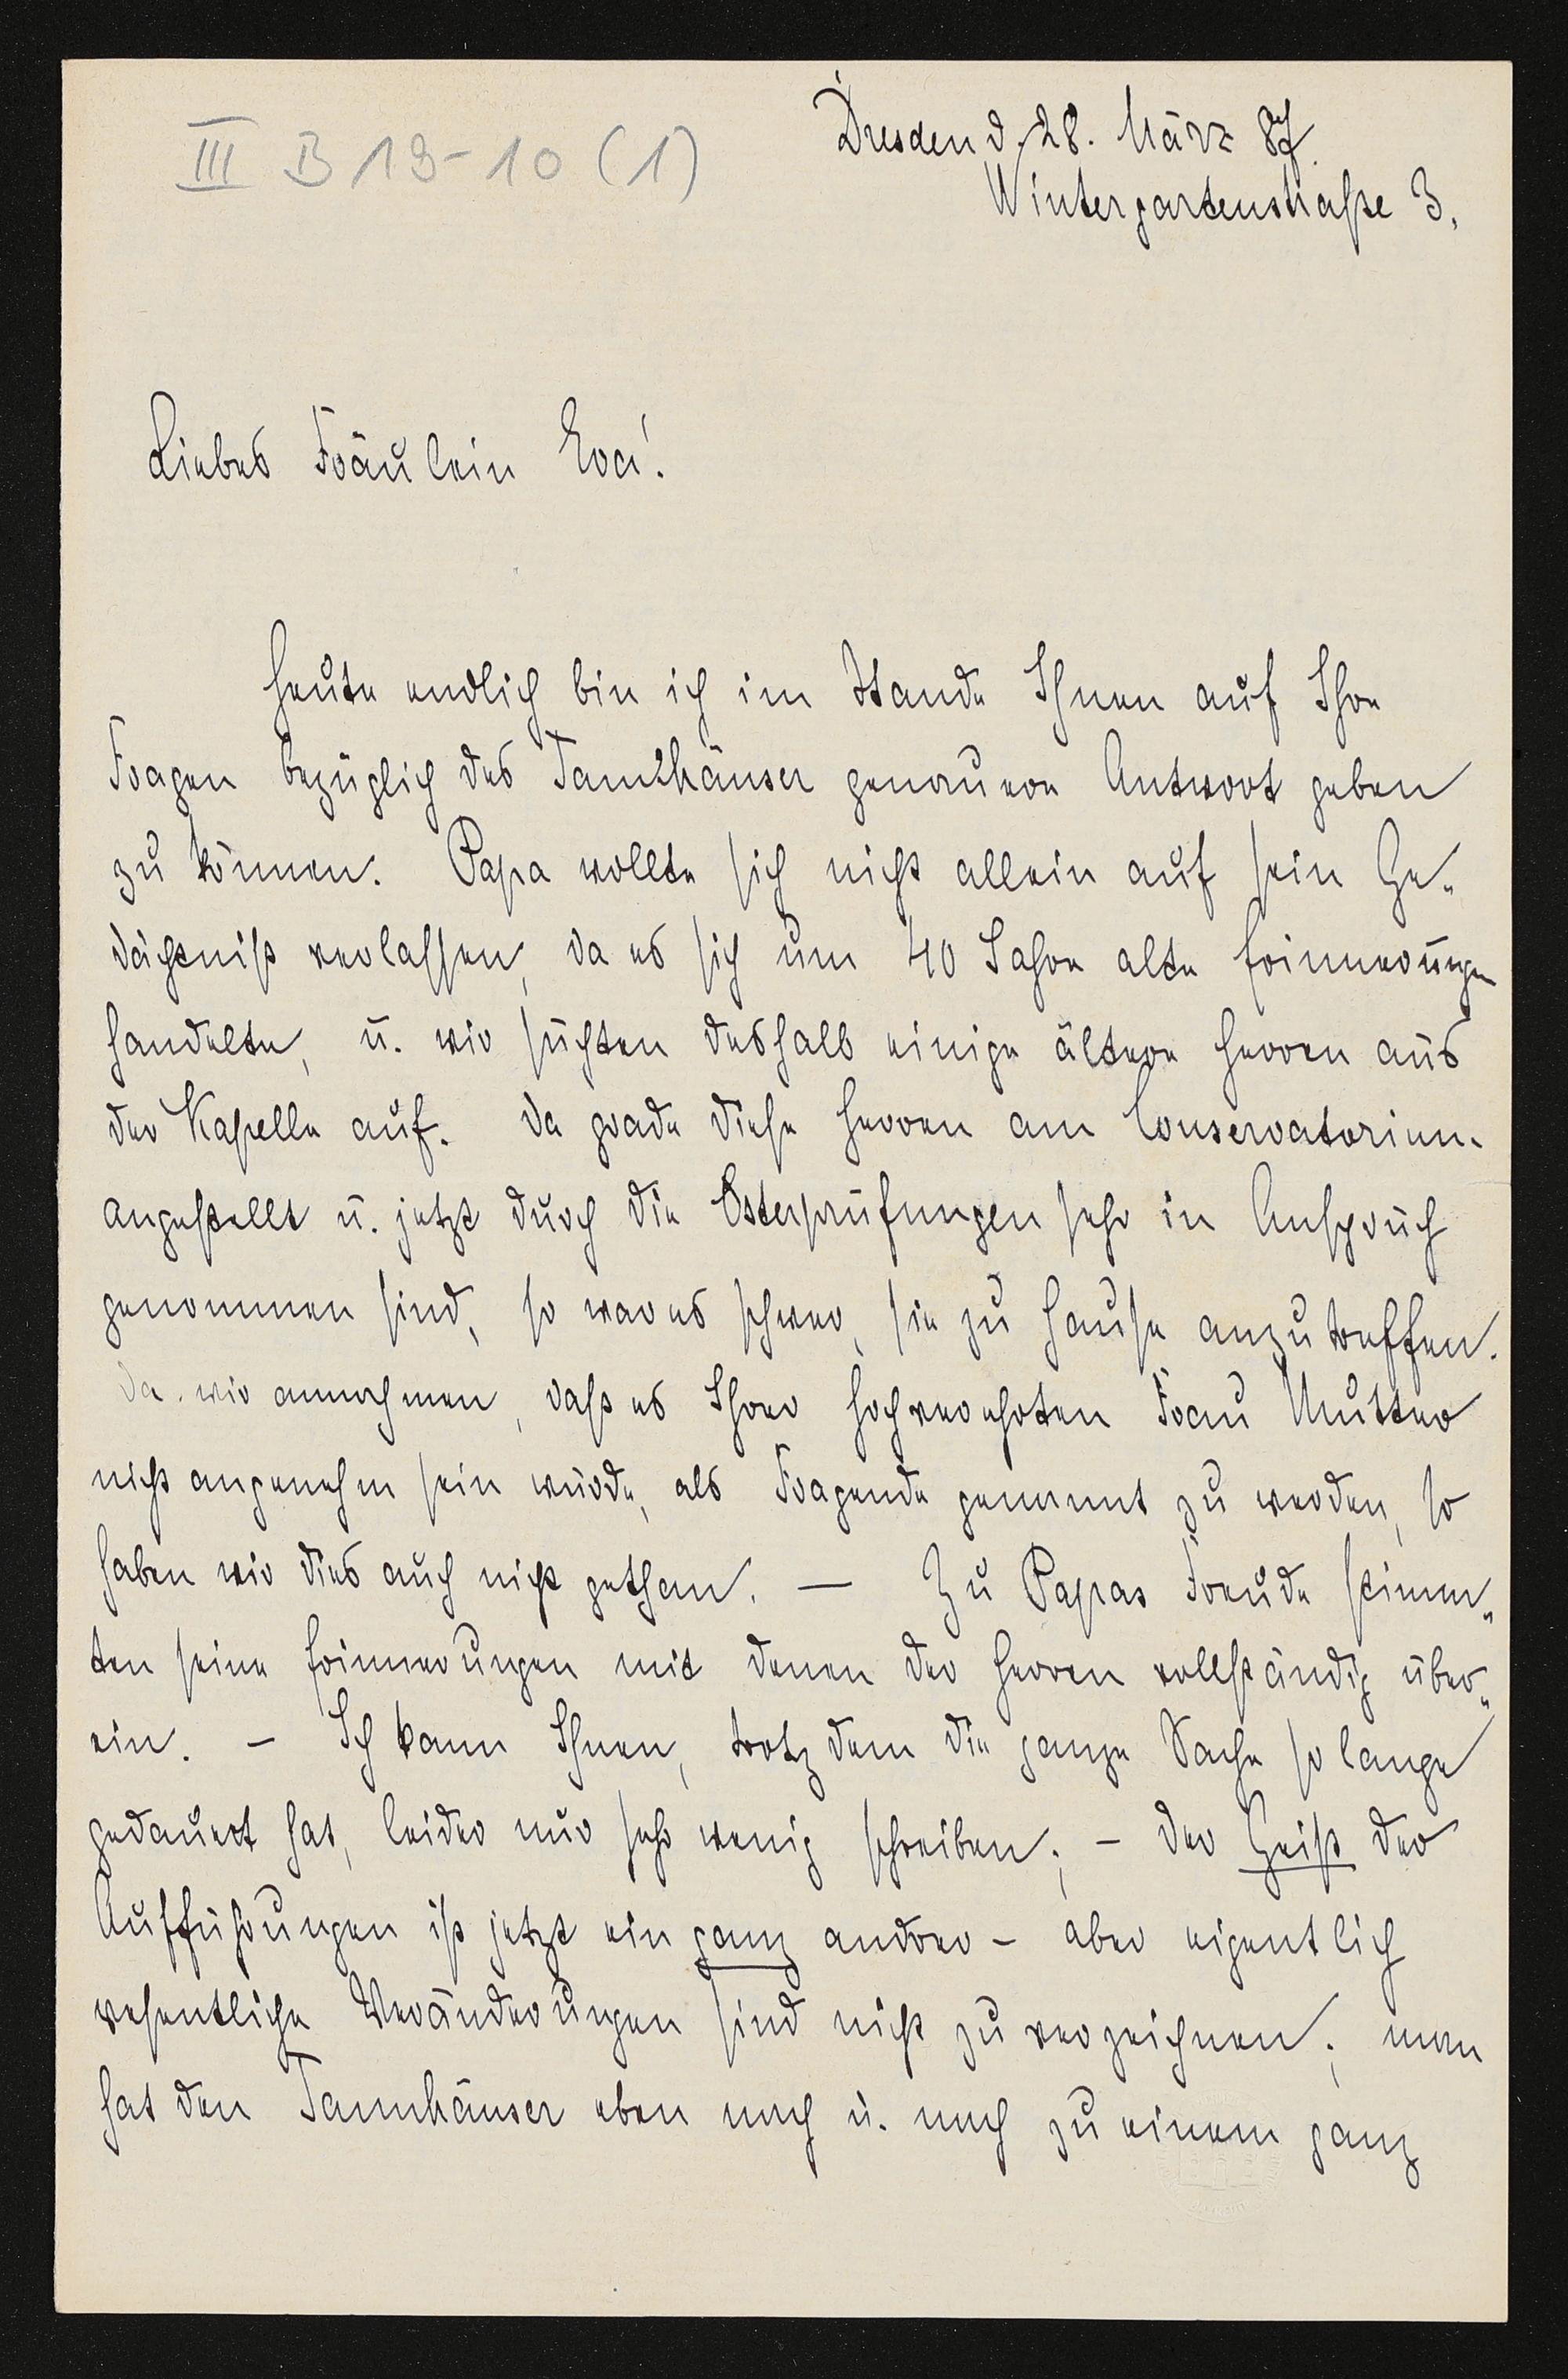 III B 19-10 (1)
Dresden d. 28. März 87.
Wintergartenstraße 3.
Liebes Fräulein Eva!
Heute endlich bin ich im Stande Ihnen auf Ihre
Fragen bezüglich des Tannhäuser genauere Antwort geben
zu können. Papa wollte sich nicht allein auf sein Ge„
dächtniß verlassen, da es sich um 40 Jahre alte Erinnerungen
handelte, u. wir suchten deshalb einige ältere Herren aus
der Kapelle auf. Da grade diese Herren am Conservatorium
angestellt u. jetzt durch die Osterprüfungen sehr in Anspruch
genommen sind, so war es schwer, sie zu Hause anzutreffen.
Da wir annahmen, daß es Ihrer hochverehrten Frau Mutter
nicht angenehm sein würde, als Fragende genannt zu werden, so
haben wir dies auch nicht gethan. — Zu Papas Freude stimm„
ten seine Erinnerungen mit denen der Herren vollständig über„
ein. – Ich kann Ihnen, trotzdem die ganze Sache so lange
gedauert hat, leider nur sehr wenig schreiben; – der Geist der
Aufführungen ist jetzt ein ganz andrer – aber eigentlich
wesentliche Veränderungen sind nicht zu verzeichnen; man
hat den Tannhäuser eben nach u. nach zu einem ganz